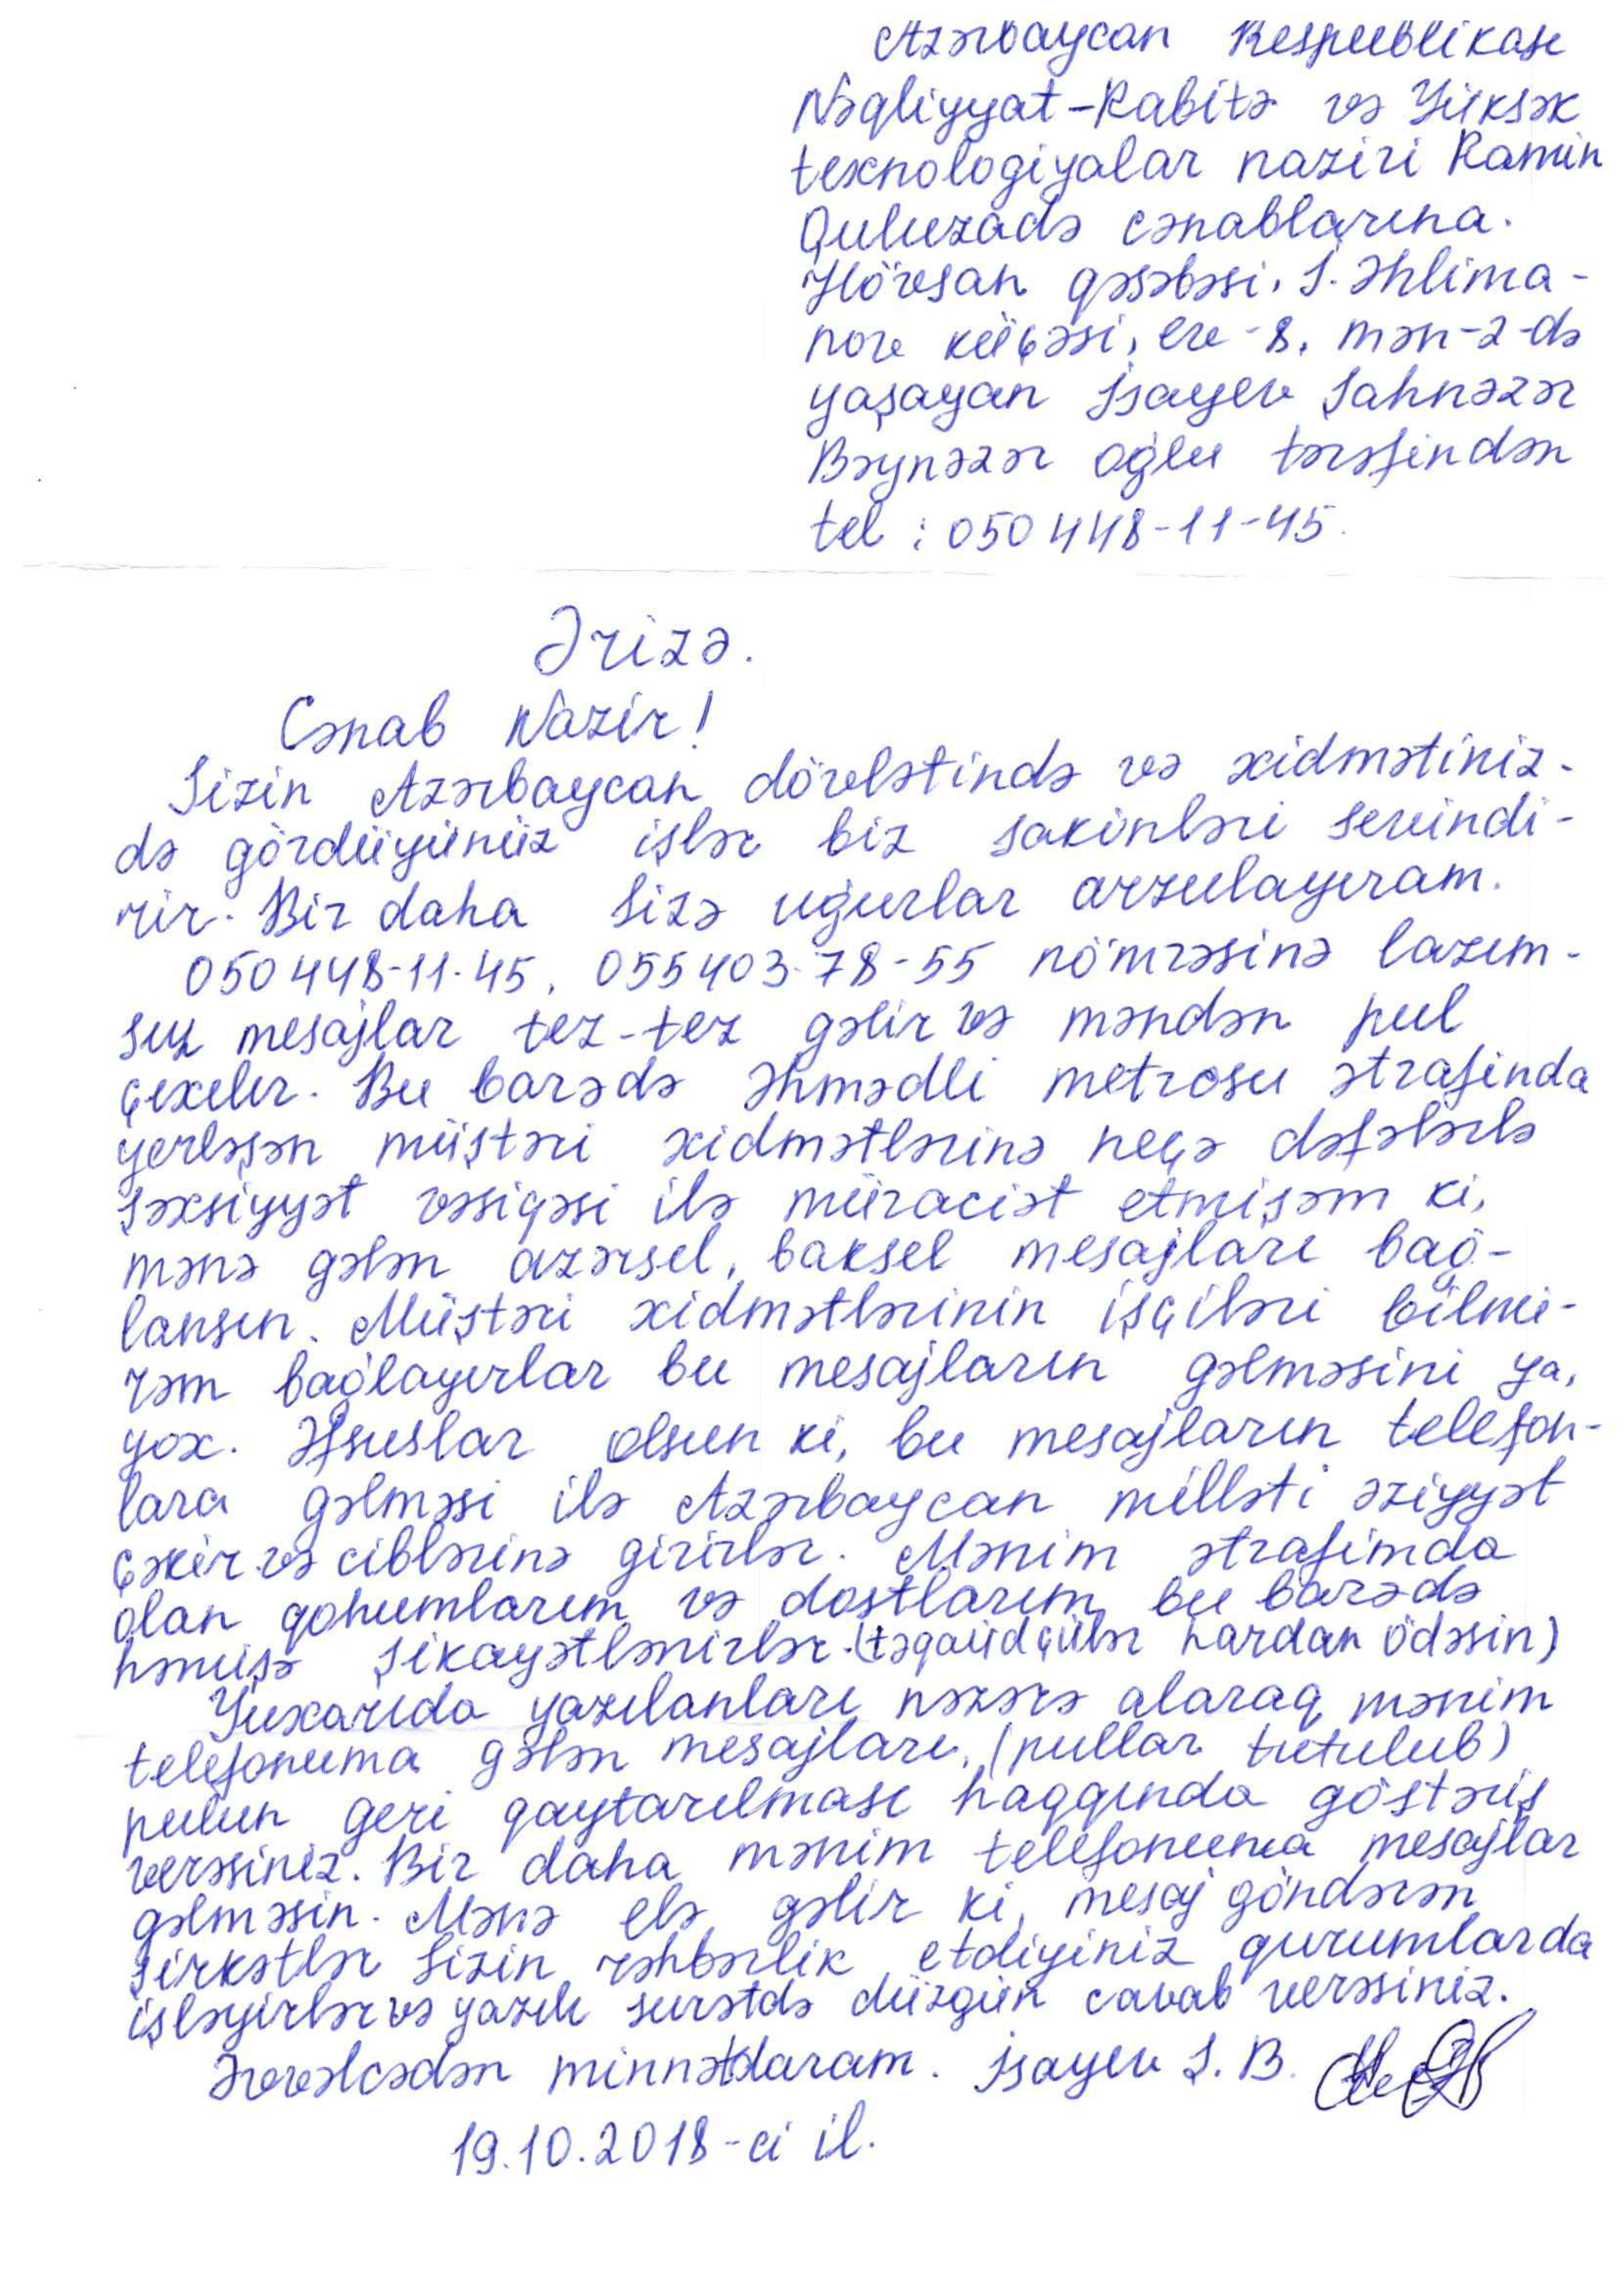 Azərbaycan Respublikası
Nəqliyyat-Rabitə və Yüksək
texnologiyalar naziri Ramin
Quluzadə cənablarına.
Hövsan qəsəbəsi, S. Əhlima-
nov küçəsi, ev-8, mən-2-də
yaşayan İsayev Şahnəzər
Bəynəzər oğlu tərəfindən
tel: 050 448-11-45.
Ərizə.
Cənab Nazir!
Sizin Azərbaycan dövlətində və xidmətiniz-
də gördüyünüz işlər biz sakinləri sevindi-
rir. Bir daha Sizə uğurlar arzulayıram.
050 448-11-45, 055 403-78-55 nömrəsinə lazım-
sız mesajlar tez-tez gəlir və məndən pul
çıxılır. Bu barədə Əhmədli metrosu ətrafında
yerləşən müştəri xidmətlərinə neçə dəfələrlə
şəxsiyyət vəsiqəsi ilə müraciət etmişəm ki,
mənə gələn azərsel, baksel mesajları bağ-
lansın. Müştəri xidmətlərinin işçiləri bilmi-
rəm bağlayırlar bu mesajların gəlməsini ya,
yox. Əfsuslar olsun ki, bu mesajların telefon-
lara gəlməsi ilə Azərbaycan milləti əziyyət
çəkir və ciblərinə girirlər. Mənim ətrafimda
olan qohumlarım və dostlarım bu barədə
həmişə şikayətlənirlər. (təqaüdçülər hardan ödəsin)
Yuxarıda yazılanları nəzərə alaraq mənim
telefonuma gələn mesajları, (pullar tutulub)
pulun geri qaytarılması haqqında göstəriş
verəsiniz. Bir daha mənim telefonuma mesajlar
gəlməsin. Mənə elə gəlir ki, mesaj göndərən
şirkətlər Sizin rəhbərlik etdiyiniz qurumlarda
işləyirlər və yazılı surətdə düzgün cavab verəsiniz.
Əvvəlcədən minnətdaram. İsayev Ş. B.
19.10.2018-ci il.